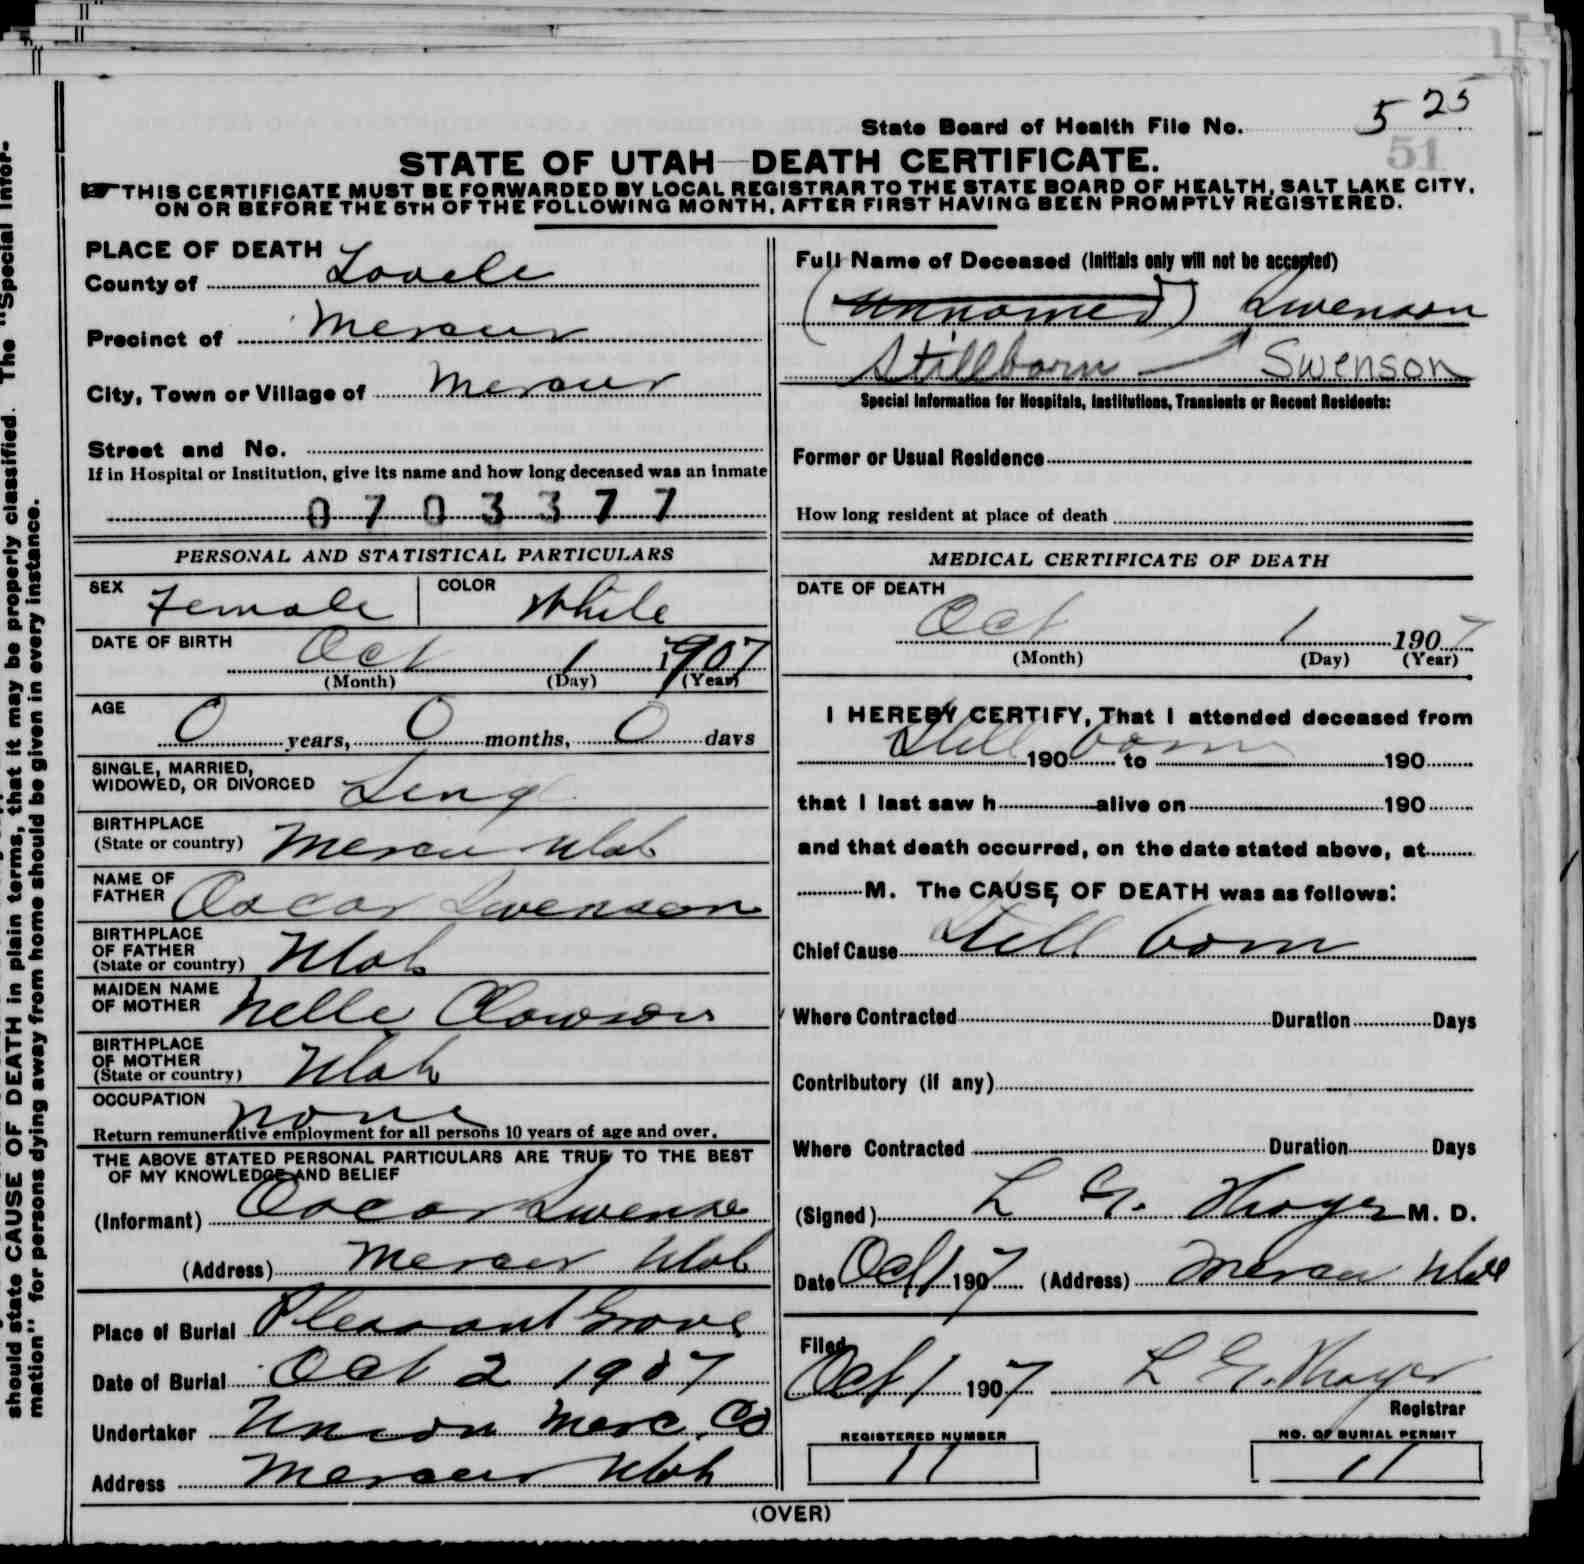 should state CAUSE OF DEATH in plain terms, that it may be properly classified. The "Special Infor-
mation" for persons dying away from home should be given in every instance.
State Board of Health File No. 5 25
51
STATE OF UTAH—DEATH CERTIFICATE.
☞THIS CERTIFICATE MUST BE FORWARDED BY LOCAL REGISTRAR TO THE STATE BOARD OF HEALTH, SALT LAKE CITY,
ON OR BEFORE THE 5TH OF THE FOLLOWING MONTH, AFTER FIRST HAVING BEEN PROMPTLY REGISTERED.
PLACE OF DEATH
County of Tooele
Precinct of Mercur
City, Town or Village of Mercur
Street and No.
If in Hospital or Institution, give its name and how long deceased was an inmate
0703377
PERSONAL AND STATISTICAL PARTICULARS
SEX Female COLOR White
DATE OF BIRTH Oct 1 1907
(Month) (Day) (Year)
AGE 0 years, 0 months, 0 days
SINGLE, MARRIED,
WIDOWED, OR DIVORCED Sing
BIRTHPLACE
(State or country) Mercur Utah
NAME OF
FATHER Oscar Swenson
BIRTHPLACE
OF FATHER
(State or country) Utah
MAIDEN NAME
OF MOTHER Nelle Clawson
BIRTHPLACE
OF MOTHER
(State or country) Utah
OCCUPATION none
Return remunerative employment for all persons 10 years of age and over.
THE ABOVE STATED PERSONAL PARTICULARS ARE TRUE TO THE BEST
OF MY KNOWLEDGE AND BELIEF
(Informant) Oscar Swenson
(Address) Mercur Utah
Place of Burial Pleasant Grove
Date of Burial Oct 2 1907
Undertaker Union Merc. Co
Address Mercur Utah
Full Name of Deceased (Initials only will not be accepted)
(Unnamed) Swenson
Stillborn — Swenson
Special Information for Hospitals, Institutions, Transients or Recent Residents:
Former or Usual Residence
How long resident at place of death
MEDICAL CERTIFICATE OF DEATH
DATE OF DEATH
Oct 1 1907
(Month) (Day) (Year)
I HEREBY CERTIFY, That I attended deceased from
Still 190 born to 190
that I last saw h alive on 190
and that death occurred, on the date stated above, at
M. The CAUSE OF DEATH was as follows:
Chief Cause Still born
Where Contracted Duration Days
Contributory (if any)
Where Contracted Duration Days
(Signed) L G. Thayer M. D.
Date Oct 1 1907 (Address) Mercur Utah
Filed
Oct 1 1907 L G. Thayer
Registrar
REGISTERED NUMBER
11
NO. OF BURIAL PERMIT
11
(OVER)